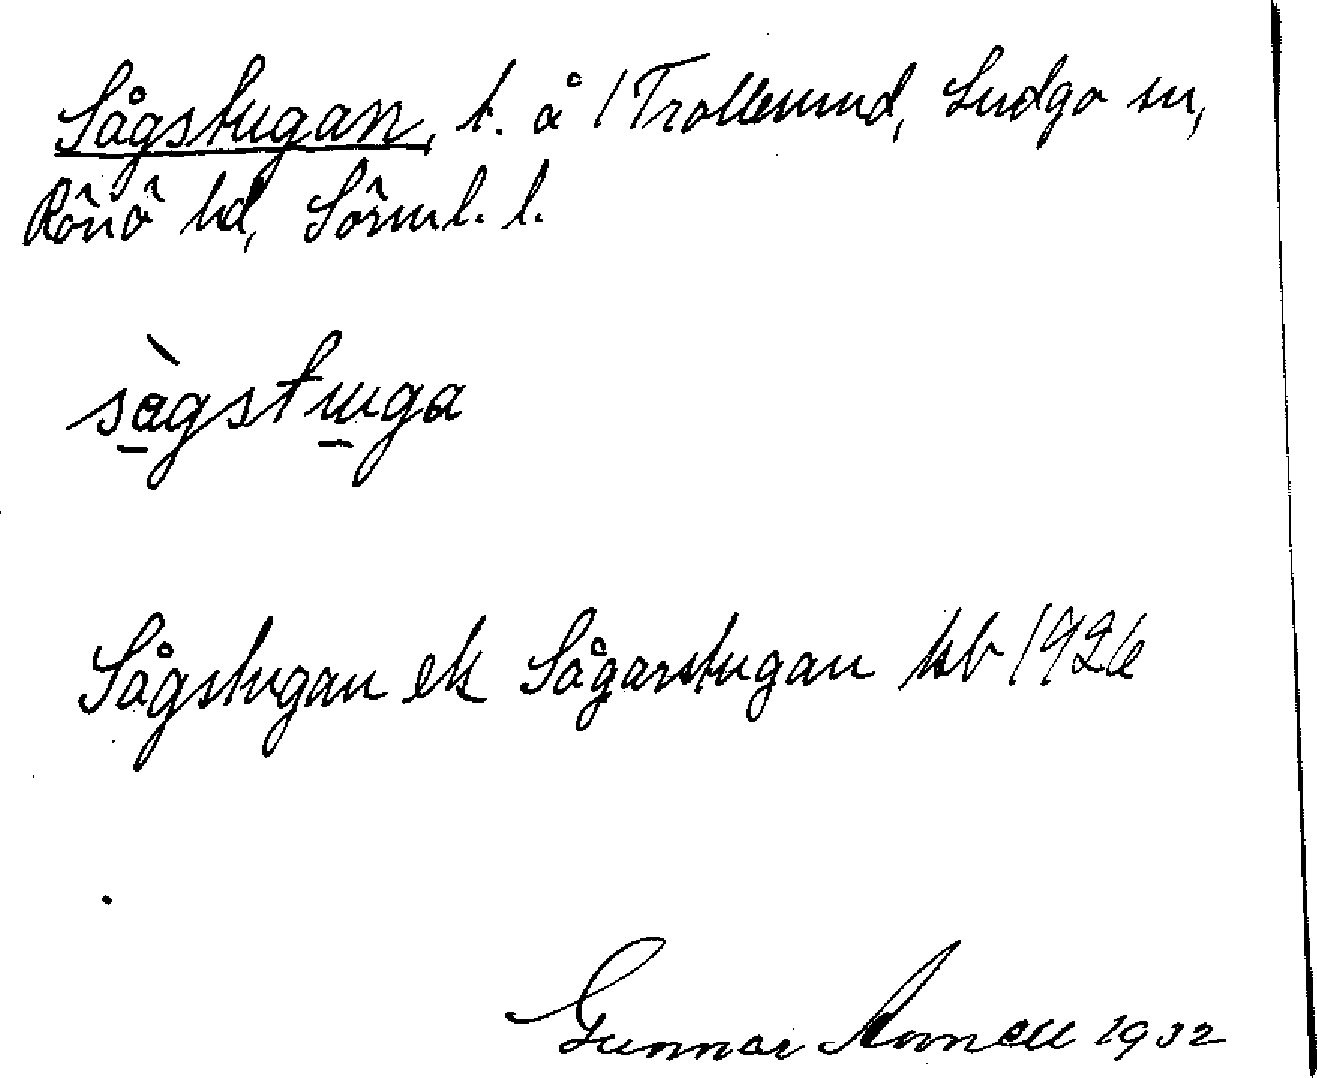 Sågstugan, t. å /Trollesund, Ludgo sn,
Rönö hd, Sörml. l.
sàgstuga
Sågstugan el Sågarstugan kb 1926
Gunnar 1932